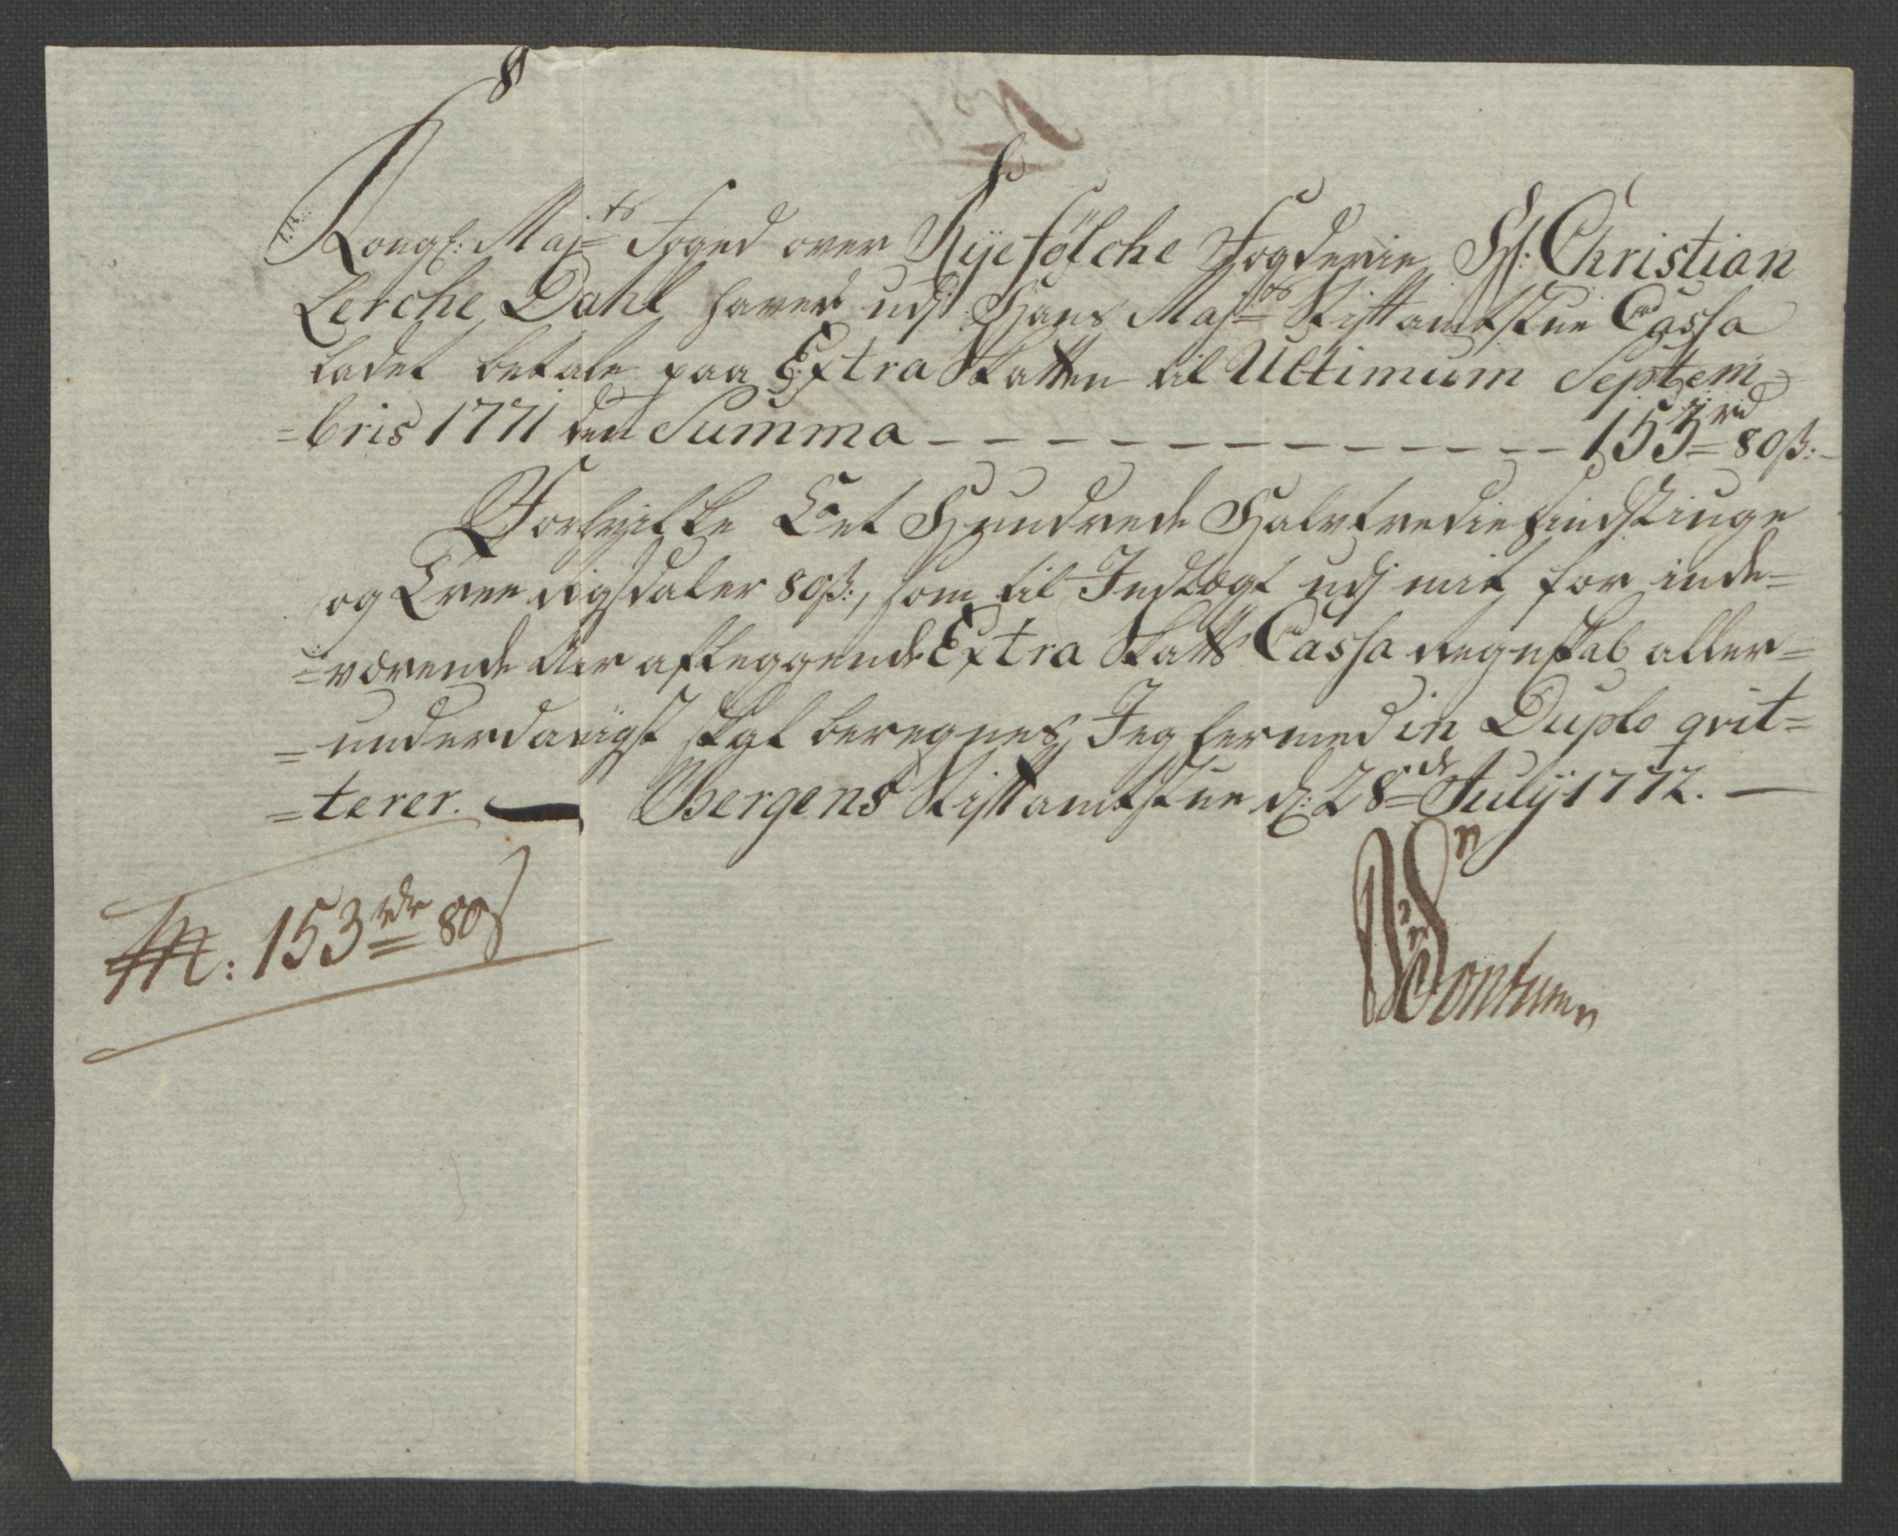 Kongl: Maj:ts Foged over Ryefølche Fogderie, Hr: Christian
Lerche Dahl haver udj Hans Maj:ts Stiftamtstue Cassa
ladet betale paa Extra Skatten til Ultimum Septem-
=bris 1771 den Summa - - - - - - - - - - - - - 153 rd 80 ß:
Forskr: Eet Hundrede Halvtrediesindstiuge
og Tree Rigsdaler 80 ß:, som til Indtægt udj mit for inde=
=værende Aar aflæggende Extra Skatts Cassa Regnskab aller=
=underdanigst skal beregnes, Jeg hermed in Duplo qvit=
=terer. — Bergens Stiftamtstue d: 28de Julij 1772. —
153 rdr 80 ß